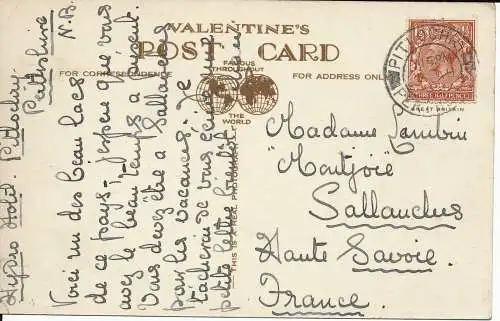 VALENTINE'S
POST CARD
FAMOUS
THROUGHOUT
THE
WORLD
FOR CORRESPONDENCE
FOR ADDRESS ONLY
THIS IS A REAL PHOTOGRAPH
PITLOCHRY
THREE HALFPENCE
GREAT BRITAIN
Hydro Hotel. Pitlochry
Perthshire
N.B.
Voici un des beau lacs
de ce pays - J'espère que vous
avez le beau temps à present.
Vous devez être à Sallanches
pour les vacances. Je
tâcherai de vous écrire une
petite lettre bientôt
Madame
"Montjoie"
Sallanches
Haute Savoie
France.